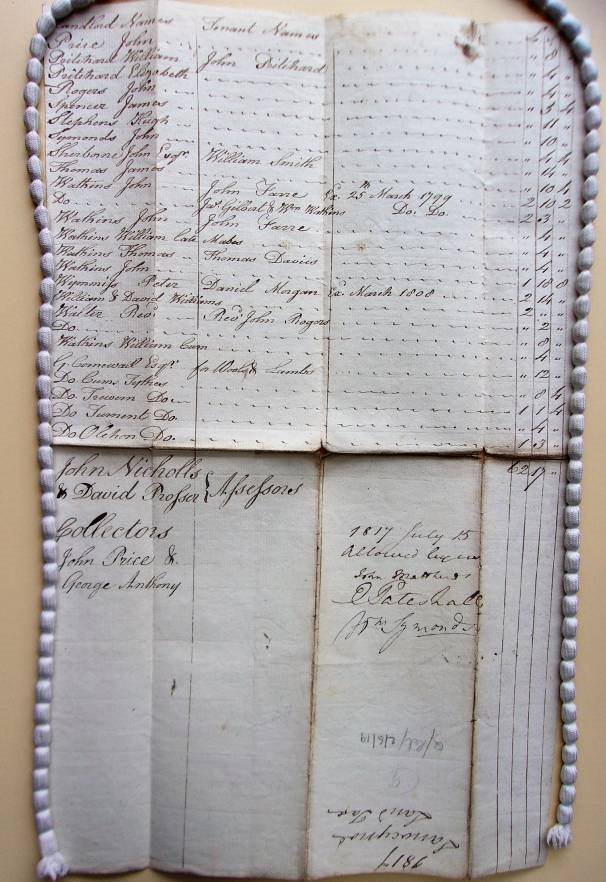 Landlord Names Tenant Names
Price John 8
Pritchard William John Pritchard 4
Pritchard Elizabeth
Rogers John
Spencer James 3 4
Stephens Hugh 11
Symonds John 10
Sherborne John Esqr. William Smith 4 4
Thomas James 4
Watkins John John Farre Ex. 25th March 1799 10 4
Do Jas. Gilbert & Wm Watkins Do. Do. 2 10 2
Watkins John John Farre 2 3
Watkins William late Mabes 4
Watkins Thomas Thomas Davies 4
Watkins John 4
Wymniss Peter Daniel Morgan Ex. March 1808 1 18 8
William & David Williams 2 14
Waller Revd. Revd. John Rogers 2
Do 2
Watkins William Cum 8
G. Cornewall Esqr. for Wool & Lambs 4
Do Cum Tythes 12
Do Trewern Do 8 4
Do Turnent Do 1 1 4
Do Olchon Do. 4
1 3
John Nicholls 62 17
& David Prosser } Assessors
Collectors
John Price &
George Anthony
1817 July 15
Allowed by us
John Matthews
E Pateshall
Wm Symonds
2/6/19
9
Land Tax
1817